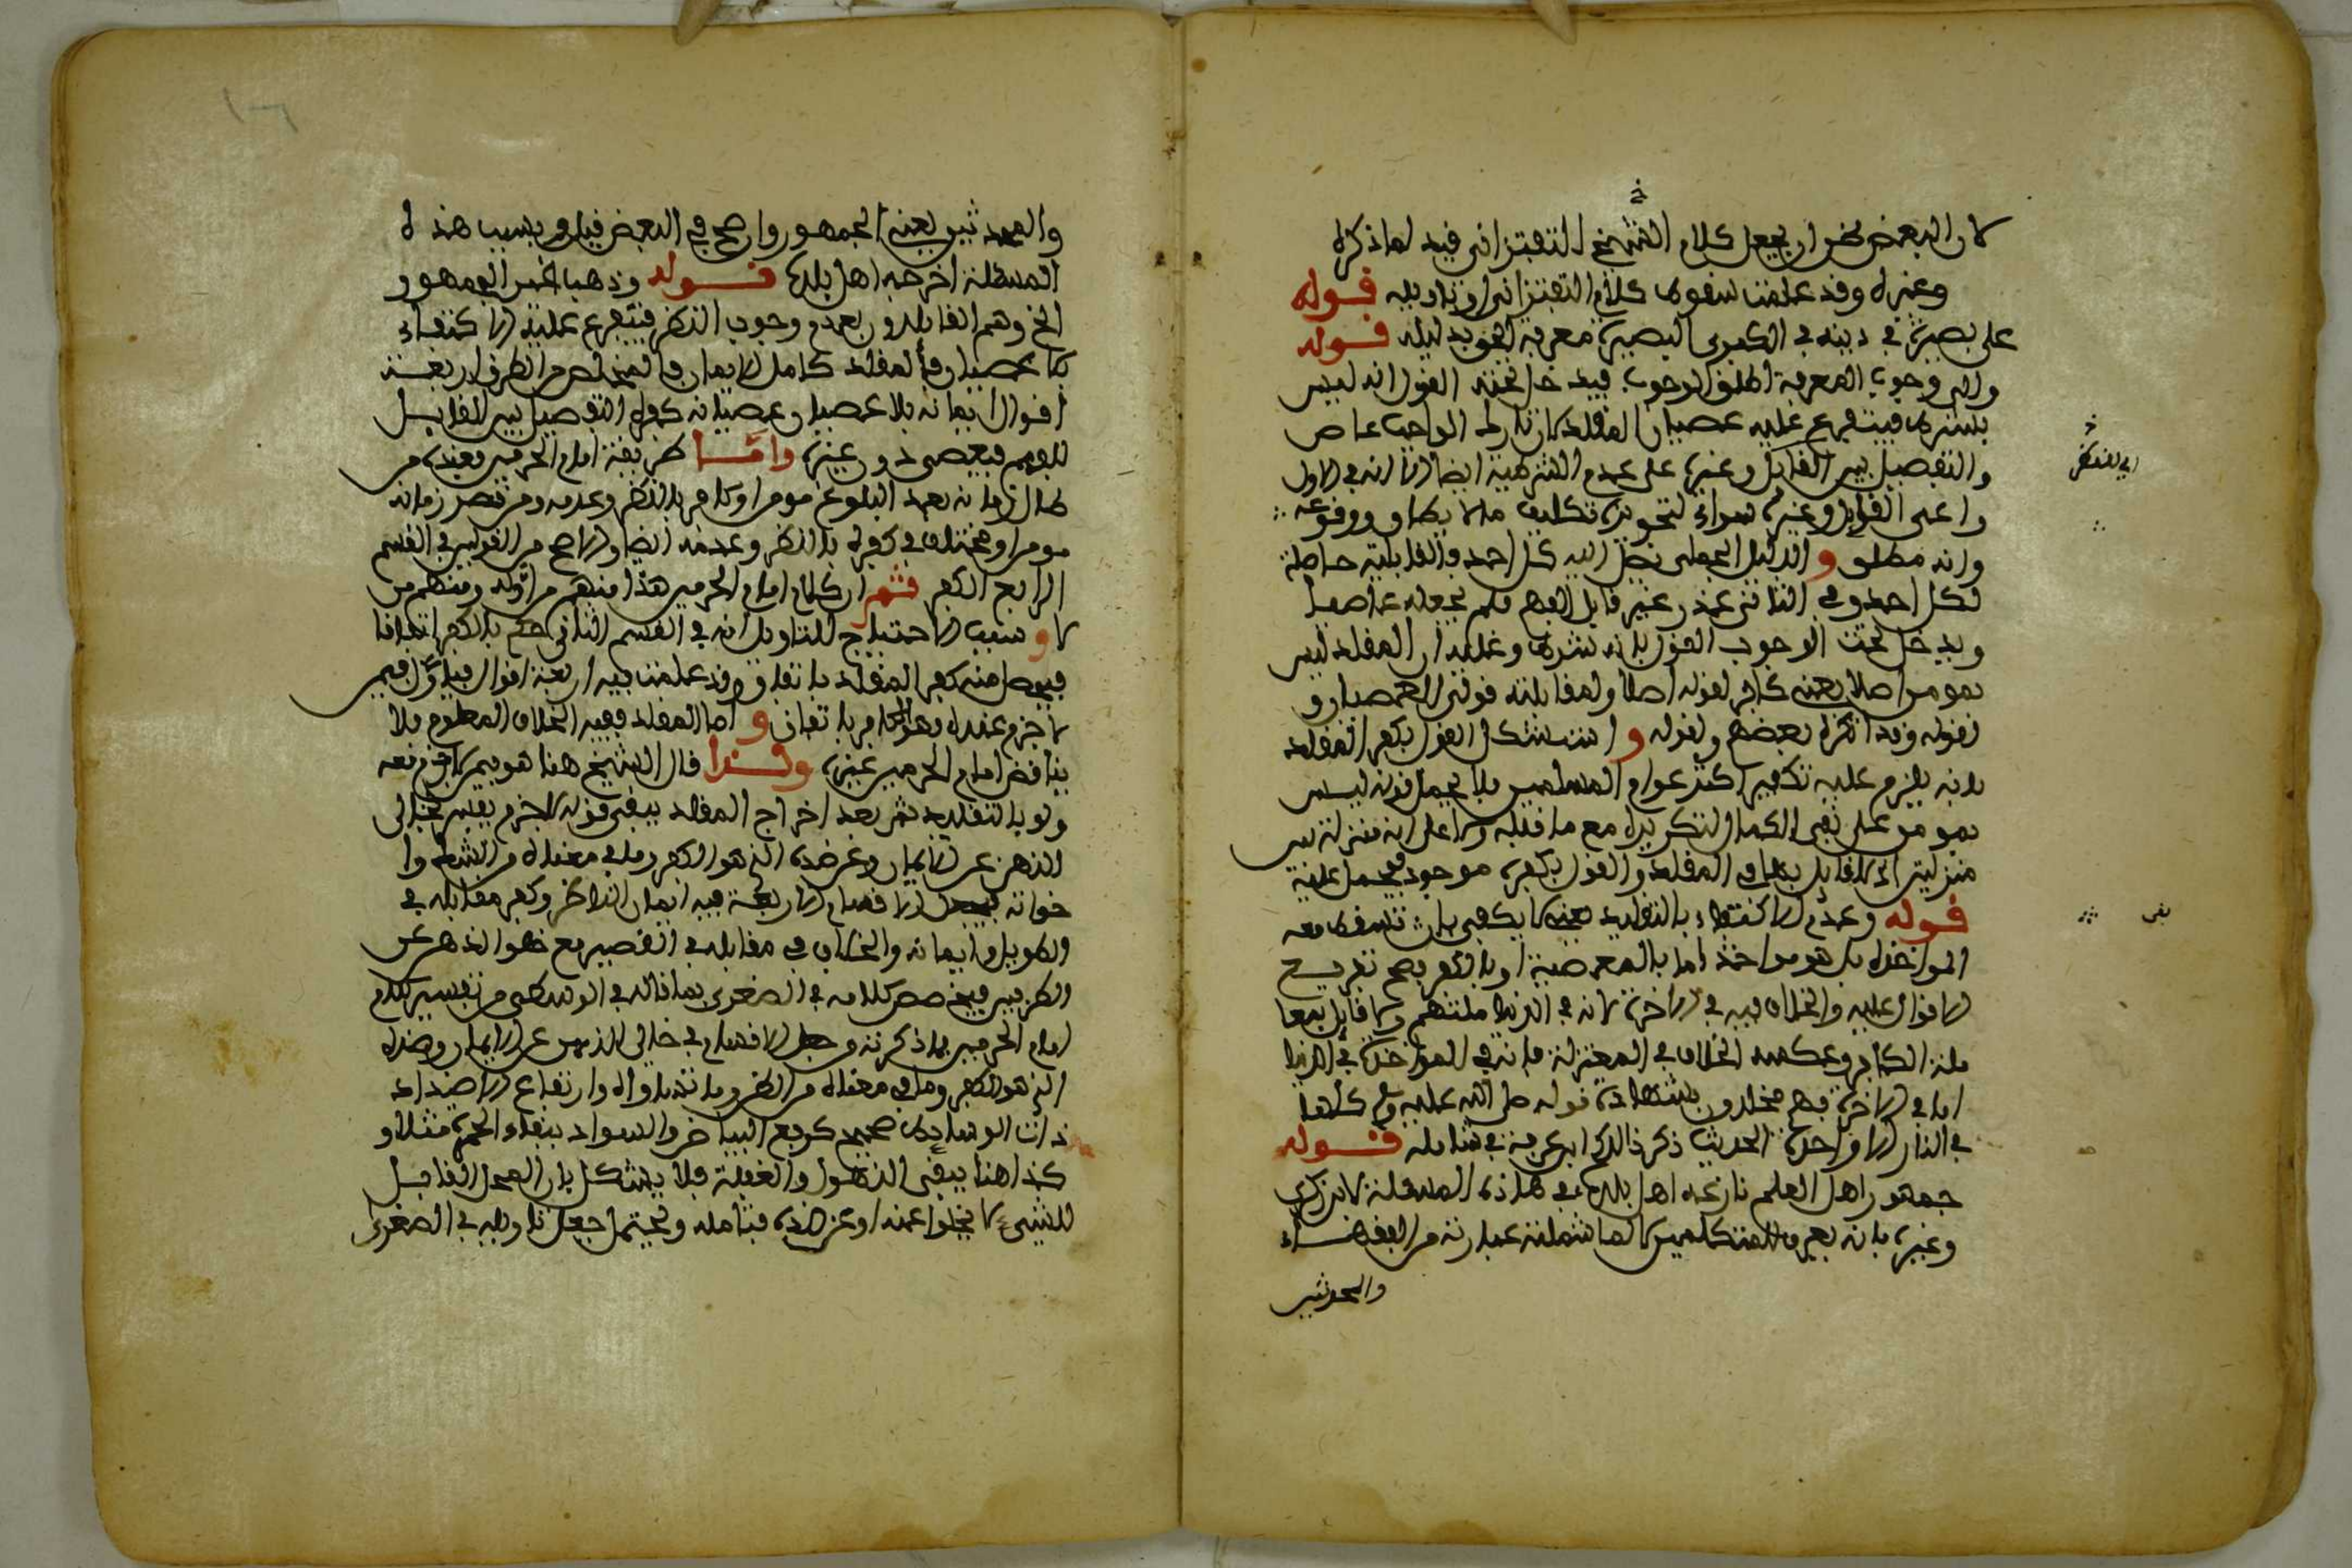 لان البعض نحن ان يجعل كلام الشيخ التفتزاني قيد لما ذكره
وغيره وقد علمت سقوط كلام التفتزاني او تاويله قوله
على بصيرة في دينه في الكبرى البصيرة معرفة الحق بدليله قوله
والى وجوب المعرفة اطلق الوجوب فيدخل تحته القول انه ليس
بشرط فيتفرع عليه عصيان المقلد لان تارك الواجب عاص
والتفصيل بين القابل وغيره على عدم الشرطية ايضا الا انه في الاول
راعى القابل وغيره سواء لتجويزه تكليف ما لا يطاق ووقوعه
وانه مطلق و الدليل الجملي نصل اليه كل احد والقابلية حاصلة
لكل احد وفي الثاني عذر غير قابل الفهم فلم يجعله عاصيا
ويدخل تحت الوجوب القول بانه شرط وعليه ان المقلد ليس
بمومن اصلا يعني كافر لقوله اصلا ولمقابلته قولي العصيان و
لقوله وقد انكره بعضهم ولقوله و استشكل القول بكفر المقلد
بانه يلزم عليه تكفير اكثر عوام المسلمين فلا يحمل قوله ليس
بمومن على نفي الكمال لتكريره مع ما قبله ولا على انه منزلة بين
منزلتين اذ لا قايل به في المقلد والقول بكفره موجود فيحمل عليه
قوله وعدم الاكتفاء بالتقليد يعني لا يكفي بان تسقط معه
المواخذة بل هو مواخذ اما بالمعصية او بالكفر يصح تفريع
الاقوال عليه والخلاف فيه في الاخرة لانه في الدنيا ملتهم ولا قايل بمعا
ملة الكافر وعكسه الخلاف في المعتزلة فانه في المواخذة في الدنيا
اما في الاخرة فهم مخلدون بشهادة قوله صلى الله عليه وسلم كلها
في النار الا واحدة الحديث ذكر ذالك ابن عرفة في شامله قوله
جمهور اهل العلم نازعه اهل بلده في هاذه المسئلة لابن زكري
وغيره بانه يعرف للمتكلمين لا لما شملته عبارته من الفقهاء
والمحدثين
والمحدثين يعني الجمهور واصح في البعض قيل وبسبب هذه
المسئلة اخرجه اهل بلده قوله وذهب غير الجمهور
الخ وهم القايلون بعدم وجوب النظر فيتفرع عليه الاكتفاء
بلا عصيان فالمقلد كامل الايمان فالمتخلص من الطرق اربعة
اقوال ايمانه بلا عصيان وعصيانه كفره التفصيل بين القابل
للفهم فيعصى دون غيره واما طريقة امام الحرمين فعنده من
طال زمانه بعد البلوغ مومن او كافر بالنظر وعدمه ومن قصر زمانه
مومن او مختلف في كفره بالنظر وعدمه ايضا والاصح من القولين في القسم
الرابع الكفر ثم ان كلام امام الحرمين هذا منهم من اوله ومنهم من
لا و سبب الاحتياج للتاويل انه في القسم الثاني حكم بالكفر اتفاقا
فيحصل منه كفر المقلد باتفاق وقد علمت فيه اربعة اقوال فياول فيمن
لا جزم عنده وهو الكافر باتفاق و اما المقلد ففيه الخلاف المعلوم فلا
يناقض امام الحرمين غيره ولذا قال الشيخ هنا هو فيمن لا جزم معه
ولو بالتقليد ثم بعد اخراج المقلد يبقى قوله لا جزم يفسر بخالي
الذهن عن الايمان وعن ضده الذي هو الكفر وما في معناه من الشك وا
خواته فيحصل الاقسام الاربعة فيه ايمان الناظر وكفر مقابله في
الطويل وايمانه والخلاف في مقابله في القصير مع خلو الذهن عن
الطرفين فيخصص كلامه في الصغرى بما قاله في الوسطى من تفسير كلام
امام الحرمين بما ذكرته وجعل الاقسام في خالي الذهن عن الايمان وضده
الذي هو الكفر وما في معناه من الظن وما شابهه وارتفاع الاضداد
ذات الوسايط صحيح كرفع البياض والسواد ببقاء الحمرة مثلا و
كذا هنا يبقى الذهول والغفلة فلا يشكل بان المحل القابل
للشيء لا يخلوا عنه او عن ضده فتامله ويحتمل جعل تاويله في الصغرى